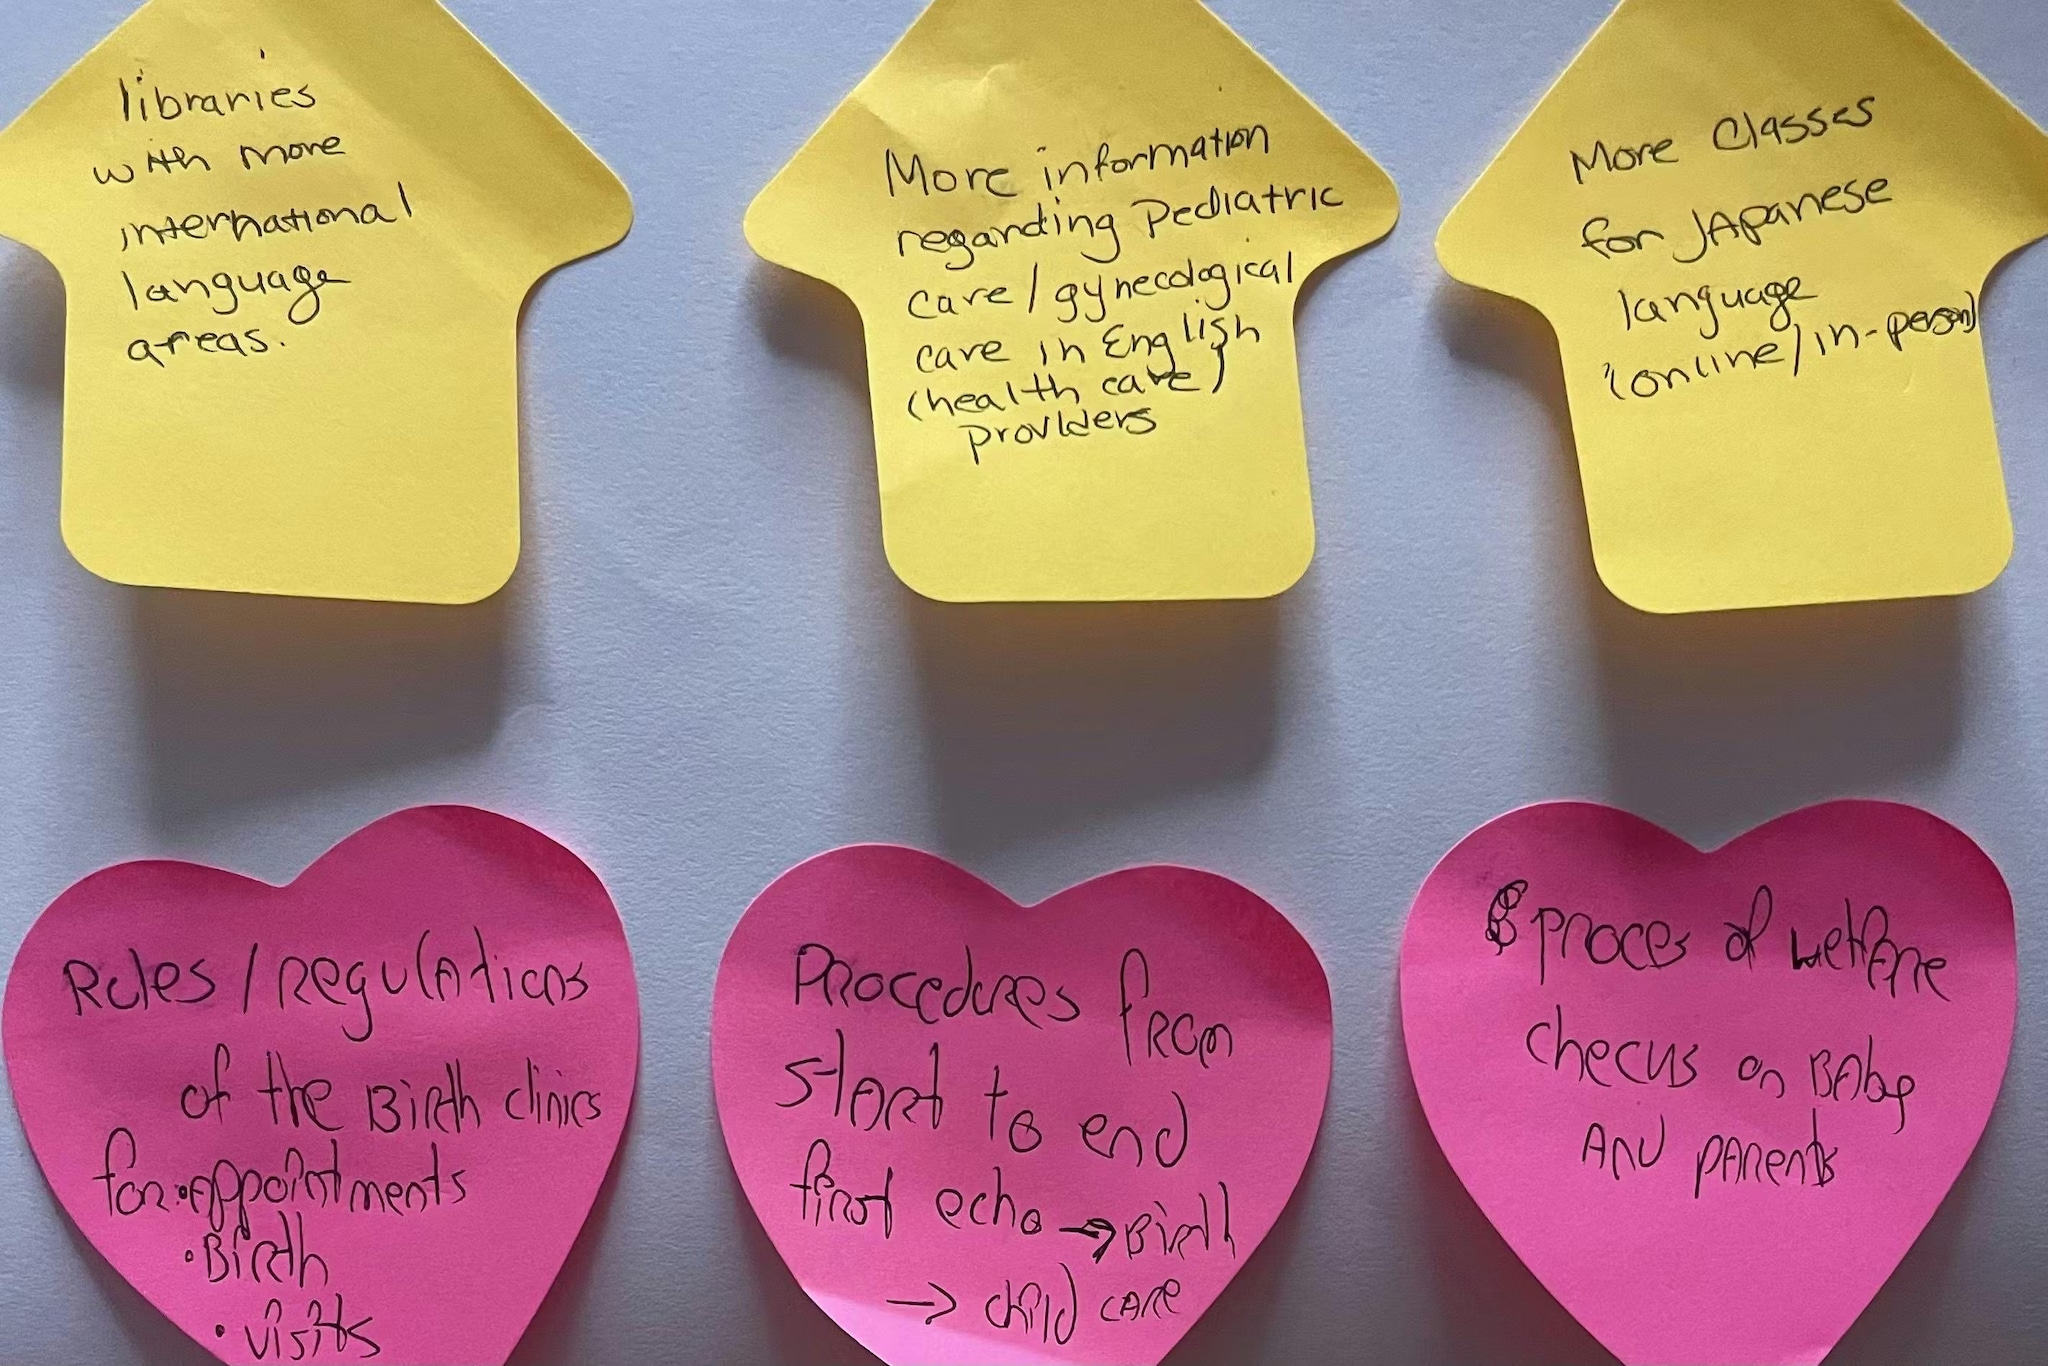 libraries
with more
international
language
areas.
More information
regarding Pediatric
care/gynecological
care in English
(health care)
providers
More Classes
for JApanese
language
(online/in-person)
Rules/regulations
of the Birth clinics
for: • Appointments
• Birth
• visits
Procedures from
start to end
first echo → Birth
→ child care
proces of welfare
checks on BAby
AND pArents